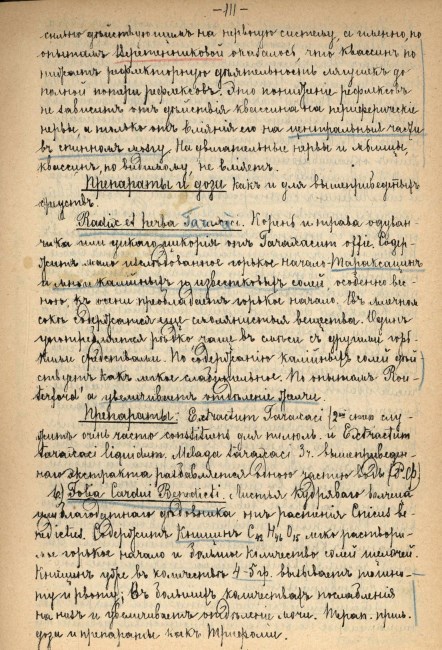 -111-
сильно дѣйствующимъ на нервную систему, а именно, по
опытамъ Веретенниковой оказалось, что квассинъ по
нижаетъ рефлекторную дѣятельность лягушекъ до
полной потери рефлексовъ. Это пониженіе рефлексовъ
не зависитъ отъ дѣйствія квассина на периферическіе
нервы, а только отъ вліянія его на центральныя части
въ спинномъ мозгу. На двигательные нервы и мышцы,
квассинъ, по видимому, не вліяетъ.
Препараты и доза какъ и для вышеприведенныхъ
средствъ.
Radix et herba Taraxaci. Корень и трава одуван-
чика или дикаго цикорія отъ Taraxacum offic. Содер-
житъ мало изслѣдованное горькое начало Тараксацинъ
и много калійныхъ и известковыхъ солей, особенно вес-
ною, къ осени преобладаетъ горькое начало. Въ млечномъ
сокѣ содержатся еще смолянистыя вещества. Одинъ
употребляется рѣдко чаще въ смѣси съ другими горь-
кими средствами. По содержанію калійныхъ солей дѣй
ствуетъ какъ легкое слабительное. По опытамъ Rou-
terford'а увеличиваетъ отдѣленіе желчи.
Препараты: Extractum Taraxaci слу-
житъ очень часто constituens для пилюль. и Extractum
Taraxaci liquidum. Mellago taraxaci 3 ч. вышеприведен-
наго экстракта разбавляется одною частью воды
b) Folia Cardui Benedicti. Листья кудряваго волчеца
или благодатнаго растенія Cnicus Be-
nedictus. Содержитъ Кницинъ C42 H56 O15 легко раствори-
мое горькое начало и большое количество солей щелочей.
Кницинъ уже въ количествѣ 4-5 гр. вызываетъ тошно-
ту и рвоту; въ большихъ количествахъ послабленія
на низъ и увеличиваетъ отдѣленіе мочи. Терап. прим.
доза и препараты какъ Трифоли.